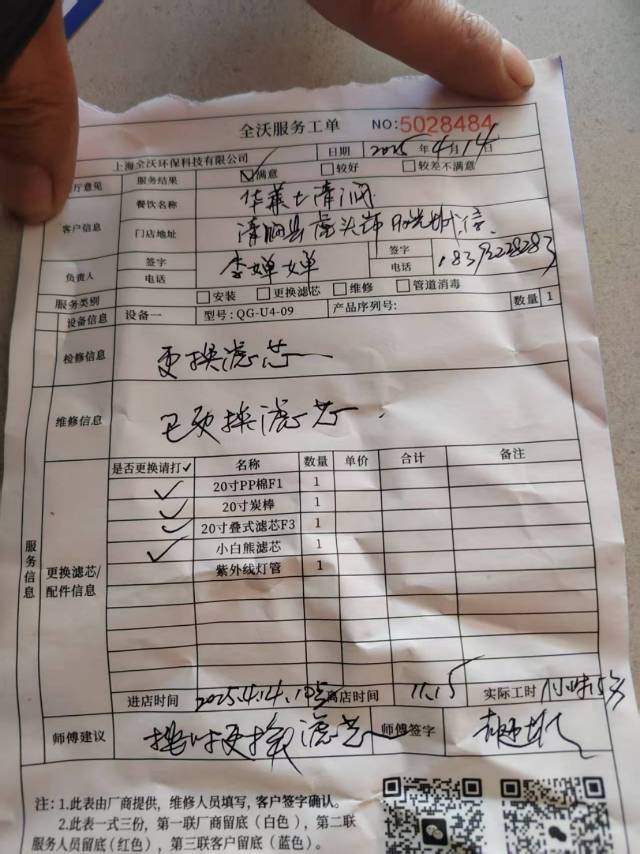 全沃服务工单 NO:5028484
上海全沃环保科技有限公司 日期 2025年4月14日
厅意见 服务结果 ☑满意 □较好 □较差不满意
客户信息 餐饮名称 华莱士清涧
门店地址 清涧县 阳光城
负责人 签字 李婵婵 签字
电话 电话
服务类别 □安装 □更换滤芯 □维修 □管道消毒
设备信息 设备一 型号:QG-U4-09 产品序列号: 数量 1
检修信息 更换滤芯
维修信息 已更换滤芯.
服务信息
更换滤芯/配件信息
是否更换请打✓ 名称 数量 单价 合计 备注
✓ 20寸PP棉F1 1
✓ 20寸炭棒 1
✓ 20寸叠式滤芯F3 1
✓ 小白熊滤芯 1
紫外线灯管 1
进店时间 2025.4.14. 离店时间 11.15 实际工时 1小时15分
师傅建议 按时更换滤芯 师傅签字
注:1.此表由厂商提供,维修人员填写,客户签字确认。
2.此表一式三份,第一联厂商留底(白色),第二联
服务人员留底(红色),第三联客户留底(蓝色)。